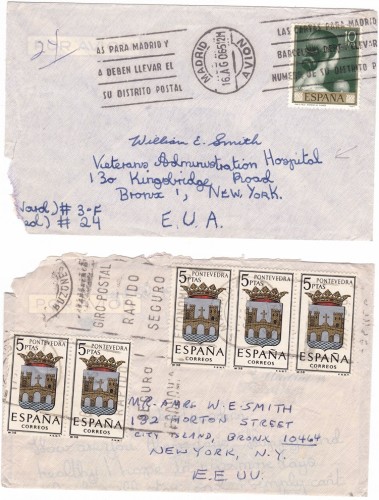 24
POR AVION
AS PARA MADRID Y
A DEBEN LLEVAR EL
SU DISTRITO POSTAL
MADRID
16.AGO65.12M
AVION
LAS CARTAS PARA MADRID
BARCELONA DEBEN LLEVAR
NUMERO DE SU DISTRITO P
10
ESPAÑA
William E. Smith
Veterans Administration Hospital
130 Kingsbridge Road
Bronx 1, New York.
E.U.A.
Ward) # 3-E
ed) # 24
GIRO-POSTAL
RAPIDO
SEGURO
5 PTAS PONTEVEDRA
ESPAÑA
CORREOS
5 PTAS PONTEVEDRA
ESPAÑA
CORREOS
5 PTAS PONTEVEDRA
ESPAÑA
CORREOS
5 PTAS PONTEVEDRA
ESPAÑA
CORREOS
5 PTAS PONTEVEDRA
ESPAÑA
CORREOS
SEGURO
MR. & MRS. W. E. SMITH
192 HORTON STREET
CITY ISLAND, BRONX 10464
NEW YORK, N.Y.
E.E. U.U.